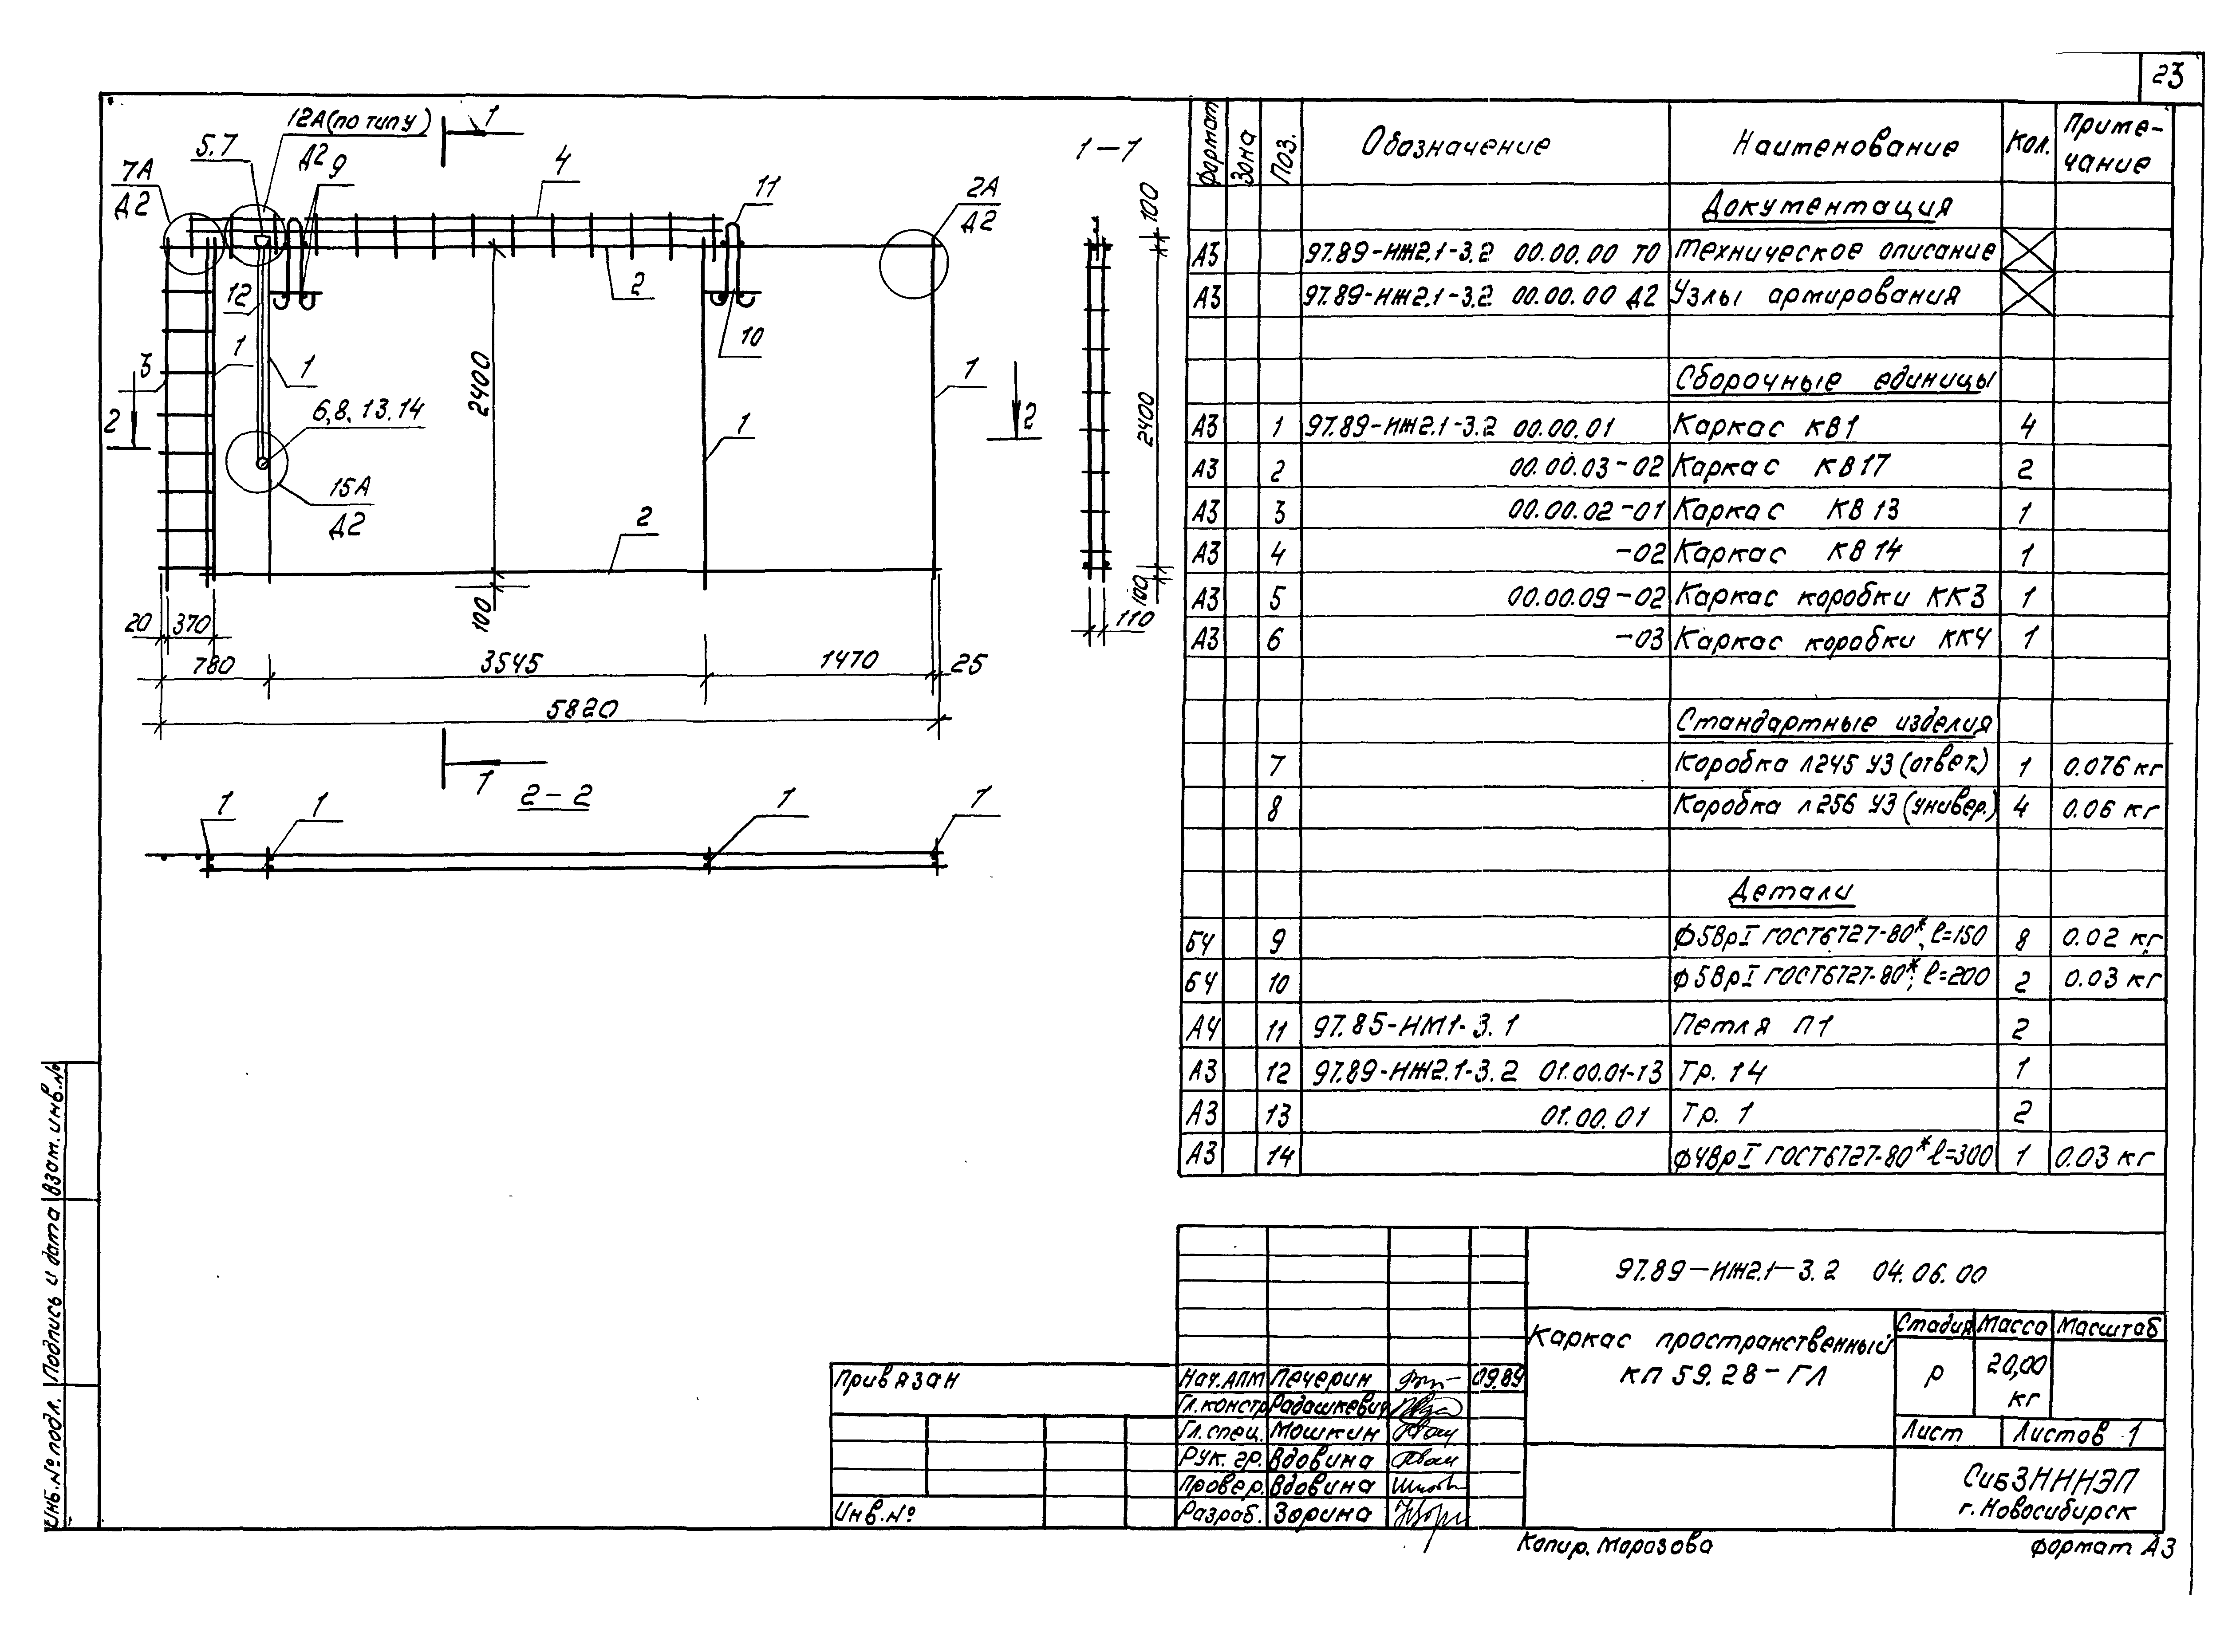 23
12А(по типу)
Д2
1
5.7
9
7А
Д2
4
11
2А
Д2
1-1
100
12
2
10
3
1
1
2400
1
2
6,8,13,14
1
2
2400
15А
Д2
2
100
100
110
20
370
780
3545
1470
25
5820
1
2-2
1
1
1
1
Формат Зона Поз. Обозначение Наименование Кол. Приме-
чание
Документация
А3 97.89-ИЖ2.1-3.2 00.00.00 ТО Техническое описание
А3 97.89-ИЖ2.1-3.2 00.00.00 Д2 Узлы армирования
Сборочные единицы
А3 1 97.89-ИЖ2.1-3.2 00.00.01 Каркас КВ1 4
А3 2 00.00.03-02 Каркас КВ17 2
А3 3 00.00.02-01 Каркас КВ13 1
А3 4 -02 Каркас КВ14 1
А3 5 00.00.09-02 Каркас коробки КК3 1
А3 6 -03 Каркас коробки КК4 1
Стандартные изделия
7 Коробка Л245 У3 (ответ.) 1 0.076 кг
8 Коробка Л256 У3 (универ.) 4 0.06 кг
Детали
БЧ 9 ф5ВрI ГОСТ6727-80*, ℓ=150 8 0.02 кг
БЧ 10 ф5ВрI ГОСТ6727-80*, ℓ=200 2 0.03 кг
А4 11 97.85-НМ1-3.1 Петля П1 2
А3 12 97.89-ИЖ2.1-3.2 01.00.01-13 Тр. 14 1
А3 13 01.00.01 Тр. 1 2
А3 14 ф4ВрI ГОСТ6727-80* ℓ=300 1 0.03 кг
97.89-ИЖ2.1-3.2 04.06.00
Каркас пространственный
КП 59.28-ГЛ
Стадия Масса Масштаб
Р 20,00
кг
Лист Листов 1
СибЗНИИЭП
г. Новосибирск
Привязан
Инв.№
Нач.АПМ Печерин 09.89
Гл.констр Радашкевич
Гл.спец. Мошкин
Рук. гр. Вдовина
Провер. Вдовина
Разраб. Зорина
Копир. Морозова
Формат А3
Инв.№ подл. Подпись и дата Взам. инв.№